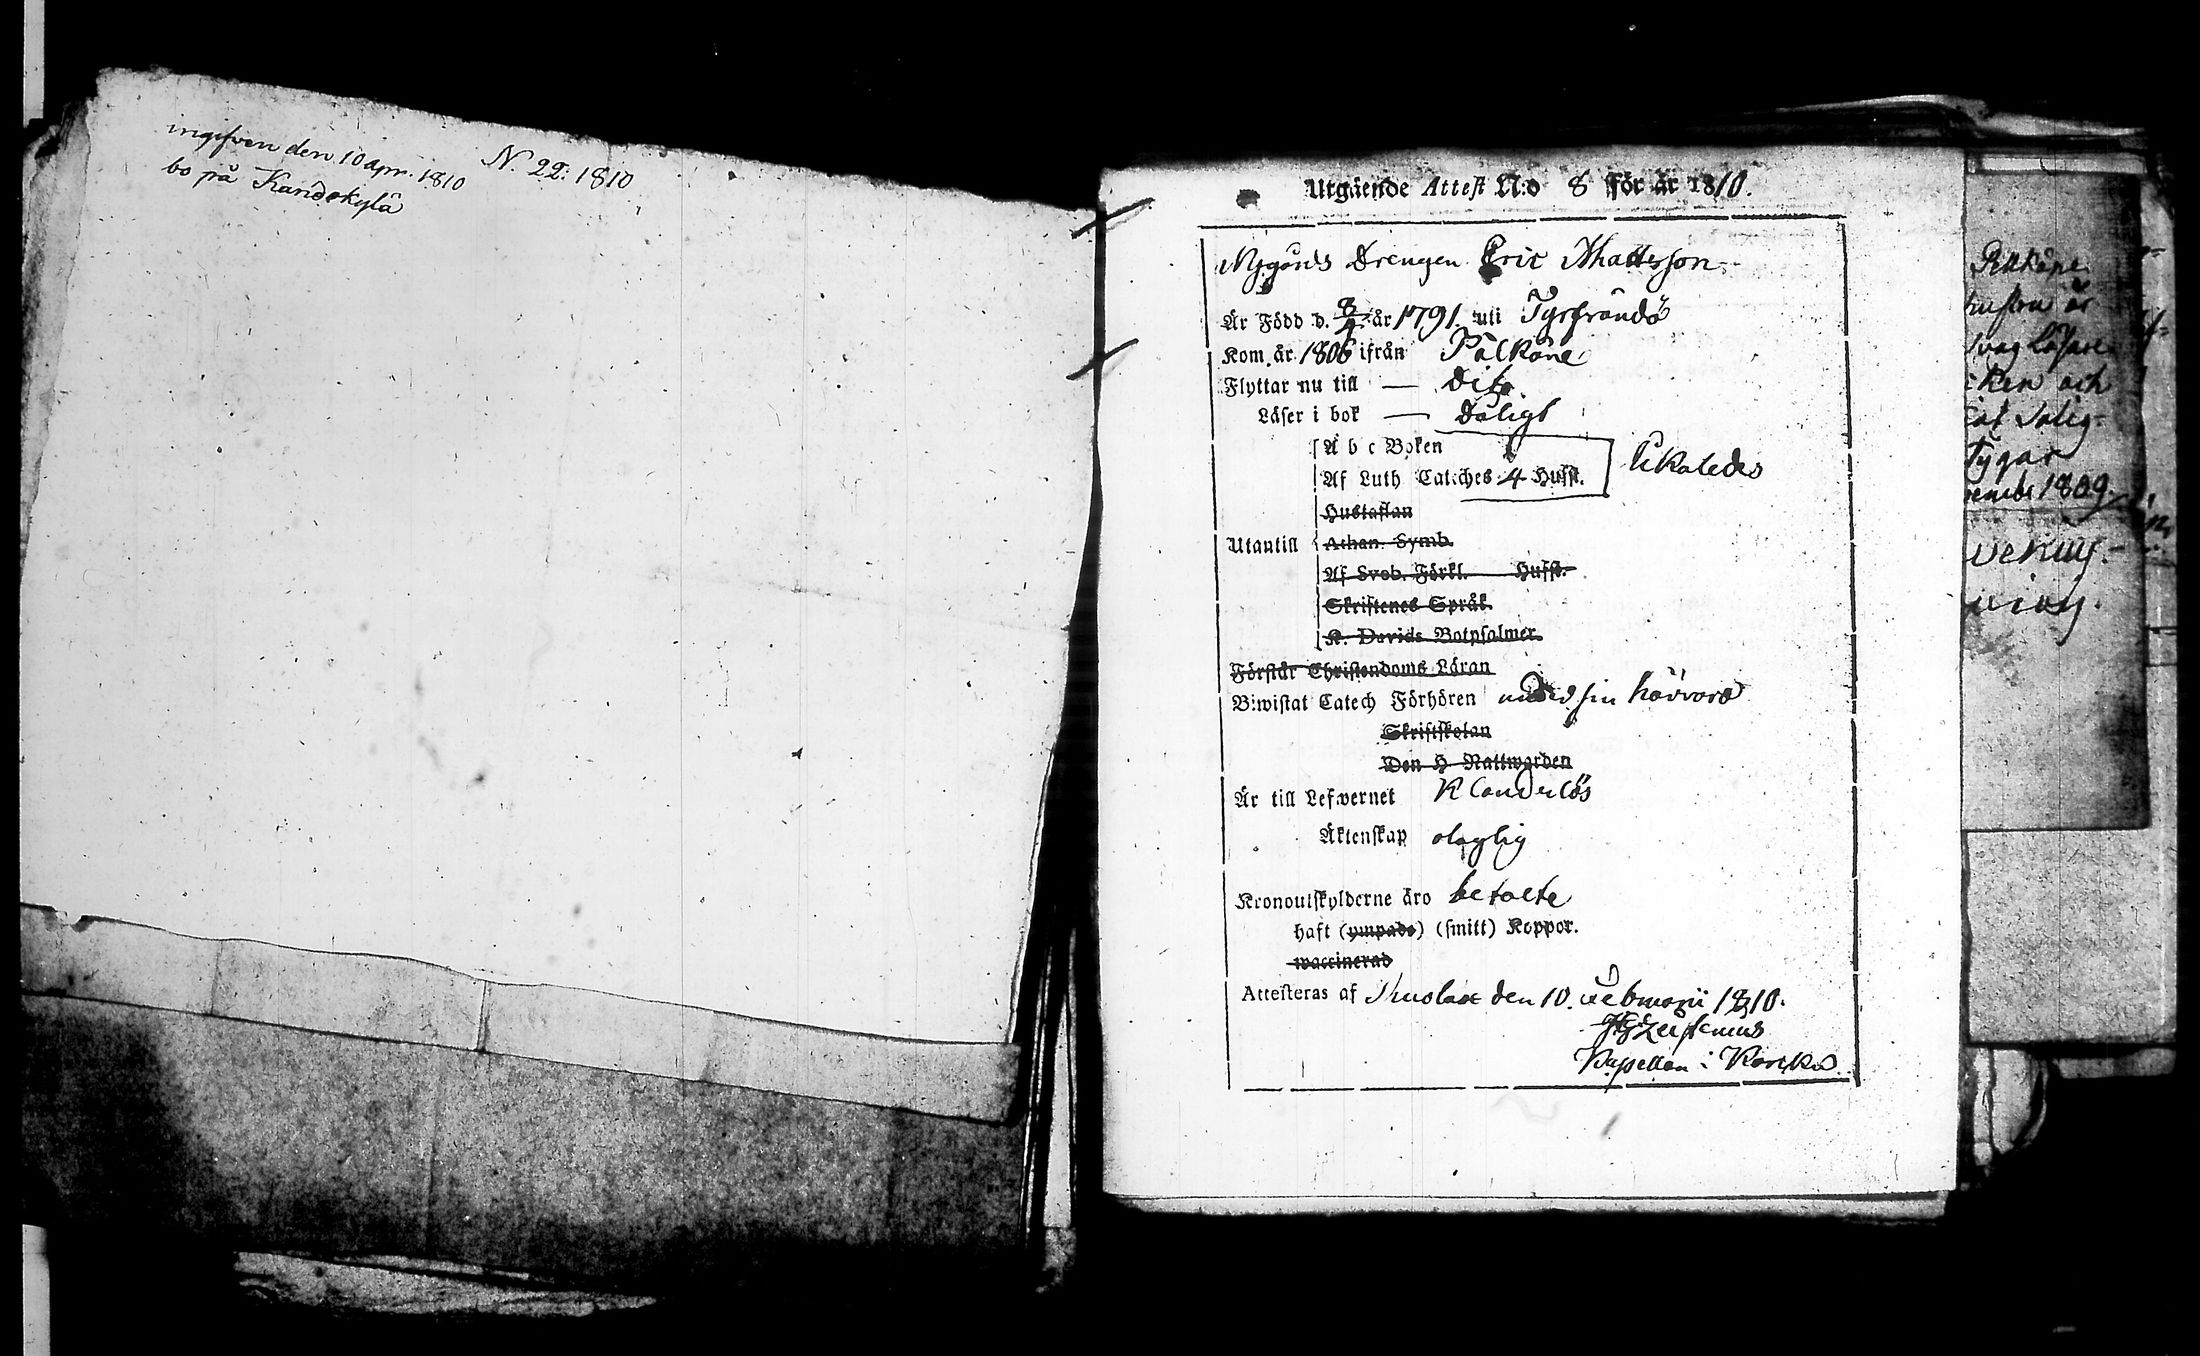 ingifven den 10 Apr. 1810 N. 22: 1810
bo på Kandokylä
Utgående Attest N:o 8 för år 1810.
Nygårds Drengen Eric Mattsson
Är Född d. 8/4 år 1791 uti Tyrfvändö
Kom år 1806 ifrån Pålkäne
Flyttar nu till — dito
Läser i bok — Dåligt
A b c Boken
Af Luth Catches 4 Hufst. likaledes
Hustaflan
Utantill Athan. Symb.
Af Sveb. Förkl. Hufst.
Skriftenes Språk
K. Davids Botpsalmer
Förstår Christendoms Läran
Biwistat Catech Förhören under sin härvaro
Skriftskolan
Den H Nattwarden
Är till Lefwernet Klanderlös
Äktenskap olaglig
Kronoutskylderne äro betalte
haft (ympade) (smitt) Koppor.
waccinerad
Attesteras af den 10. Februarii 1810.
Kapellan i
Pälkäne
hustru är
svag läsare
och
Salig-
1809.